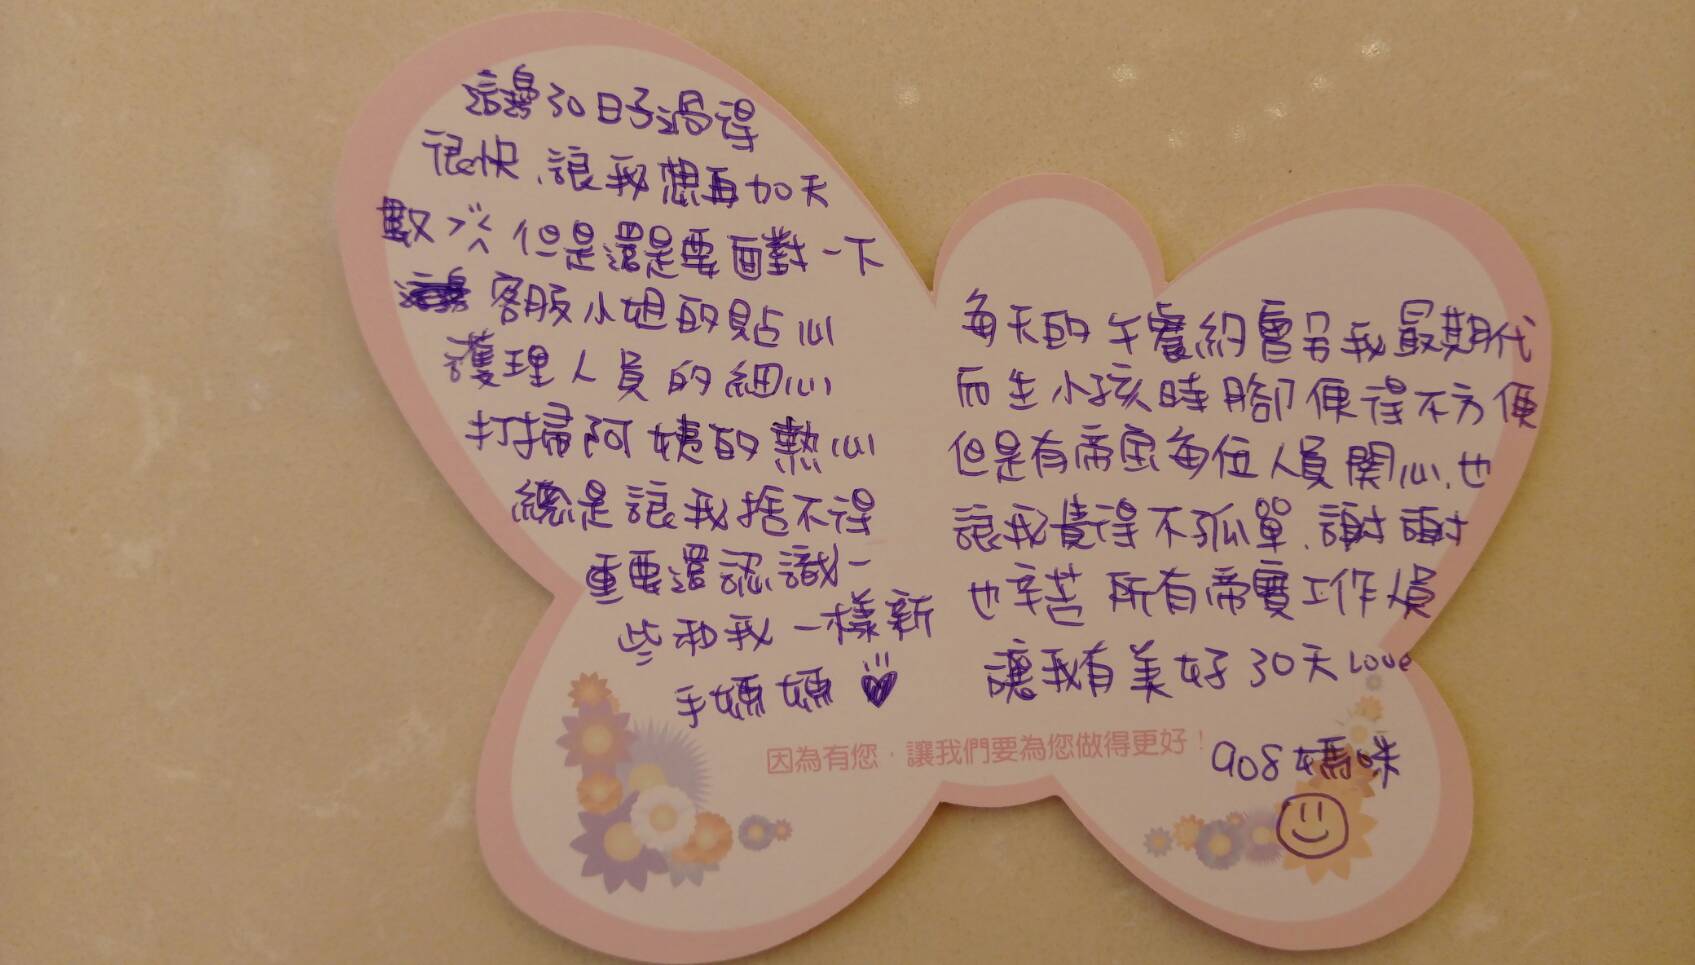 這邊30日子過得
很快、讓我想再加天
數 但是還是要面對一下
客服小姐的貼心
護理人員的細心
打掃阿姨的熱心
總是讓我捨不得
重要還認識一
些和我一樣新
手媽媽
每天的午餐約會另我最期代
而生小孩時腳便得不方便
但是有帝宝每位人員関心、也
讓我覺得不孤單、謝謝
也辛苦 所有帝寶工作人員
讓我有美好30天 Love
因為有您，讓我們要為您做得更好！
908媽咪